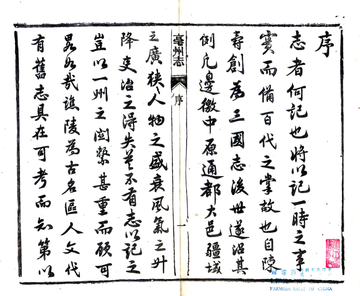 序
志者何記也將以記一時之事
實而備百代之掌故也自陳
壽創為三國志後世遂沿其
例凡邊徼中原通都大邑疆域
亳州志
序
一
之廣狹人物之盛衰風氣之升
降吏治之得失莫不有志以記之
豈以一州之關繫甚重而顧可
畧如哉譙陵為古名區人文代
有舊志具在可考而知第以